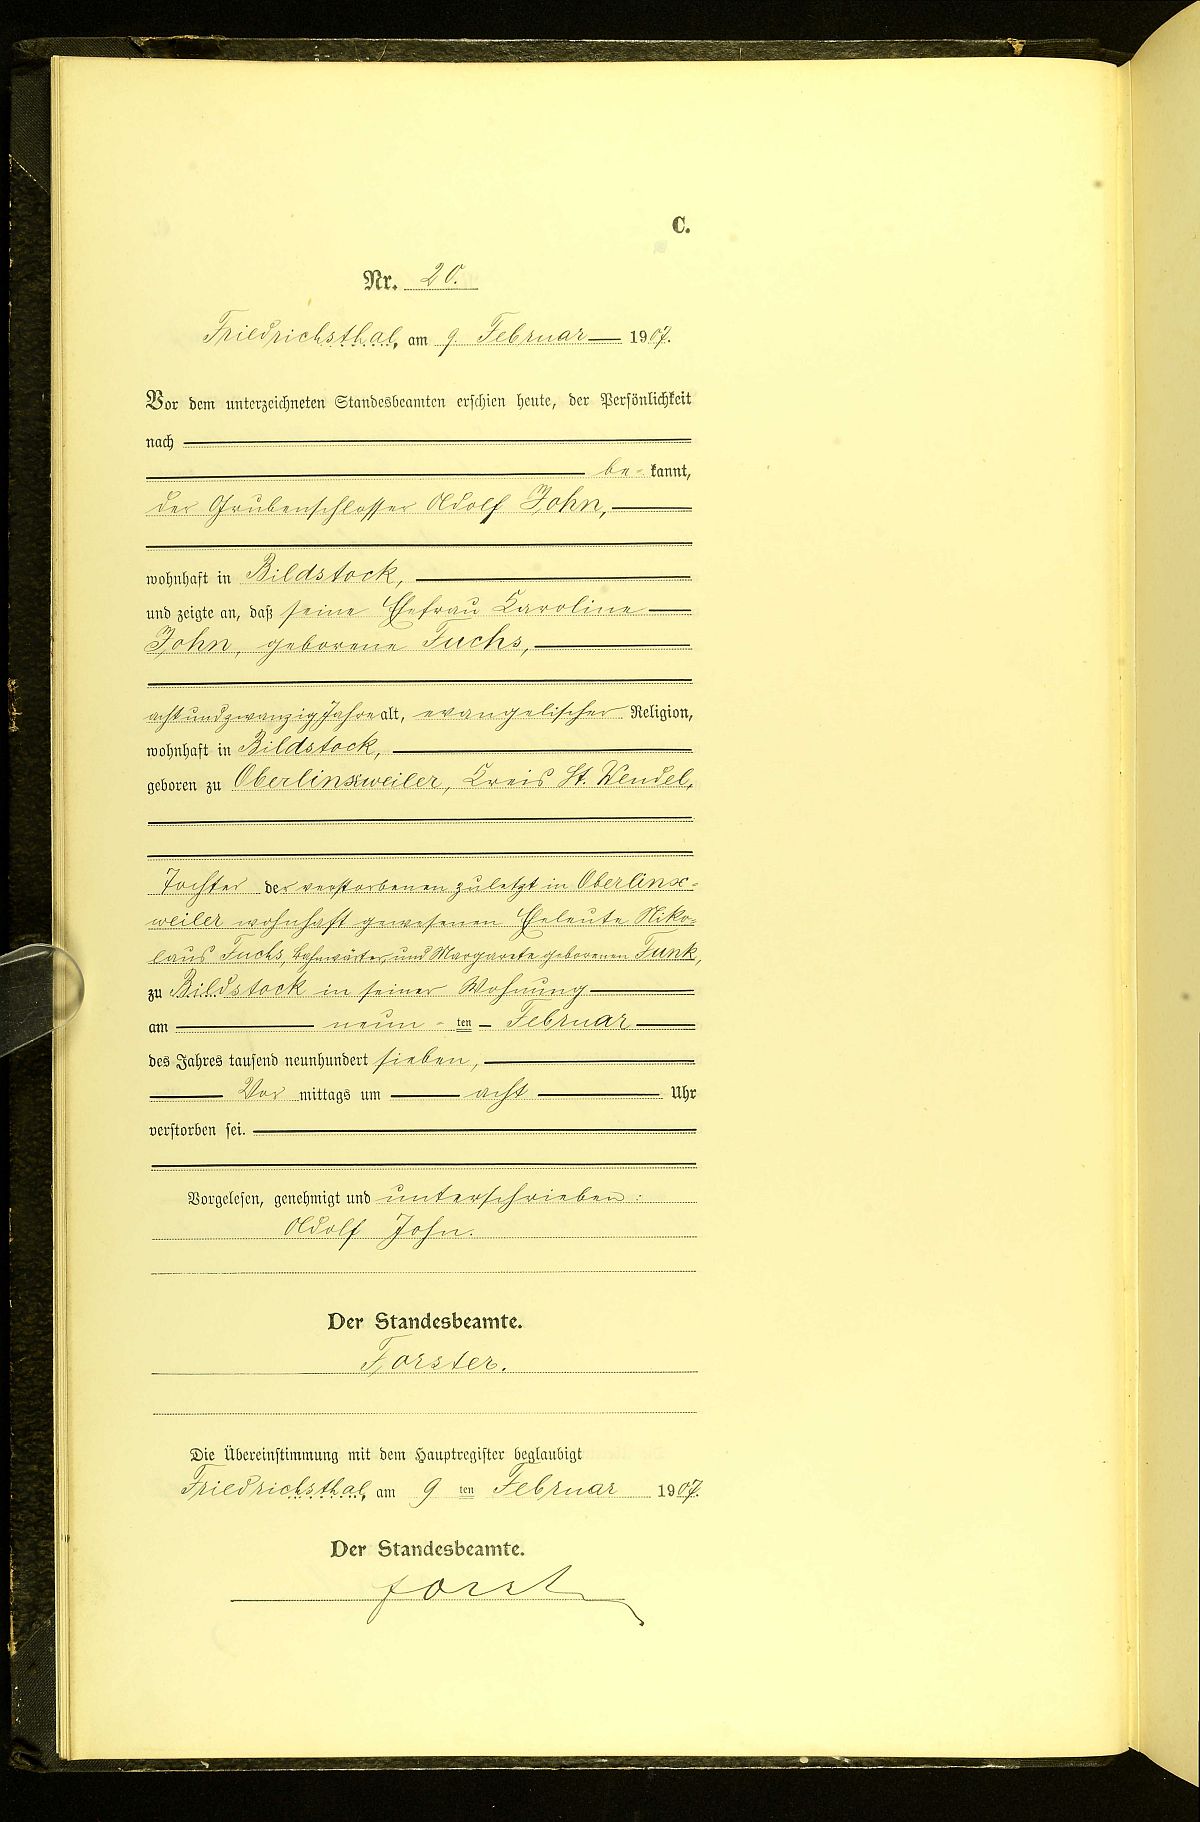 C.
Nr. 20.
Friedrichsthal, am 9. Februar 1907.
Vor dem unterzeichneten Standesbeamten erschien heute, der Persönlichkeit
nach
be- kannt,
der Grubenschlosser Adolf John,
wohnhaft in Bildstock,
und zeigte an, daß seine Ehefrau Karoline
John, geborene Fuchs,
achtundzwanzig Jahre alt, evangelischer Religion,
wohnhaft in Bildstock,
geboren zu Oberlinxweiler, Kreis St. Wendel,
Tochter der verstorbenen zuletzt in Oberlinx-
weiler wohnhaft gewesenen Eheleute Niko-
laus Fuchs, Bahnwärter, und Margarete geborenen Funk,
zu Bildstock in seiner Wohnung
am neun - ten Februar
des Jahres tausend neunhundert sieben,
Vor mittags um acht Uhr
verstorben sei.
Vorgelesen, genehmigt und unterschrieben:
Adolf John.
Der Standesbeamte.
Forster.
Die Übereinstimmung mit dem Hauptregister beglaubigt
Friedrichsthal, am 9 ten Februar 1907.
Der Standesbeamte.
Forst